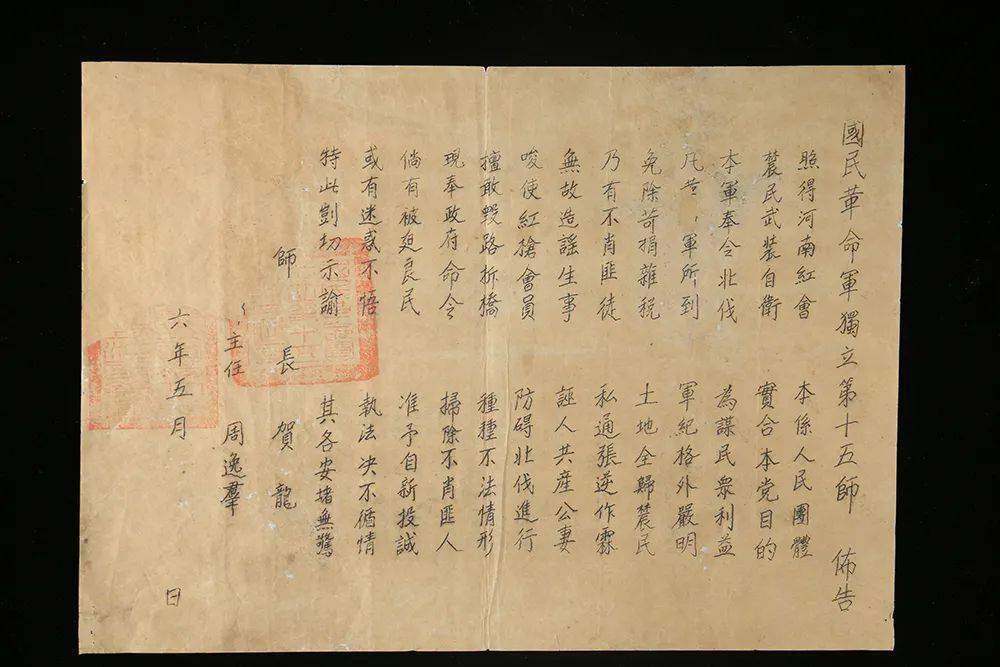 國民革命軍獨立第十五師 佈告
照得河南紅會 本係人民團體
農民武裝自衛 實合本党目的
本軍奉令北伐 為謀民衆利益
凡 軍所到 軍紀格外嚴明
免除苛捐雜税 土地全歸農民
乃有不肖匪徒 私通張逆作霖
無故造謠生事 誣人共產公妻
唆使紅槍會員 防碍北伐進行
擅敢毀路拆橋 種種不法情形
現奉政府命令 掃除不肖匪人
倘有被迫良民 准予自新投誠
或有迷惑不悟 執法决不循情
特此剴切示諭 其各安堵無驚
師長 賀龍
主任 周逸羣
六年五月 日